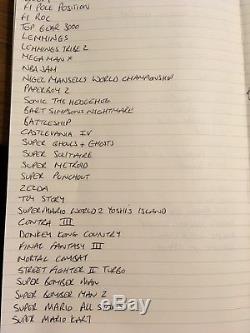 F1 POLE POSITION
F1 ROC
TOP GEAR 3000
LEMMINGS
LEMMINGS TRIBE 2
MEGA MAN X
NBA JAM
NIGEL MANSELLS WORLD CHAMPIONSHIP
PAPERBOY 2
SONIC THE HEDGEHOG
BART SIMPSONS NIGHTMARE
BATTLESHIP
CASTLEVANIA IV
SUPER GHOULS + GHOSTS
SUPER SOLITAIRE
SUPER METROID
SUPER PUNCHOUT
ZELDA
TOY STORY
SUPER MARIO WORLD 2 YOSHI'S ISLAND
CONTRA III
DONKEY KONG COUNTRY
FINAL FANTASY III
MORTAL COMBAT
STREET FIGHTER II TURBO
SUPER BOMBER MAN
SUPER BOMBER MAN 2
SUPER MARIO ALL STARS
SUPER MARIO KART